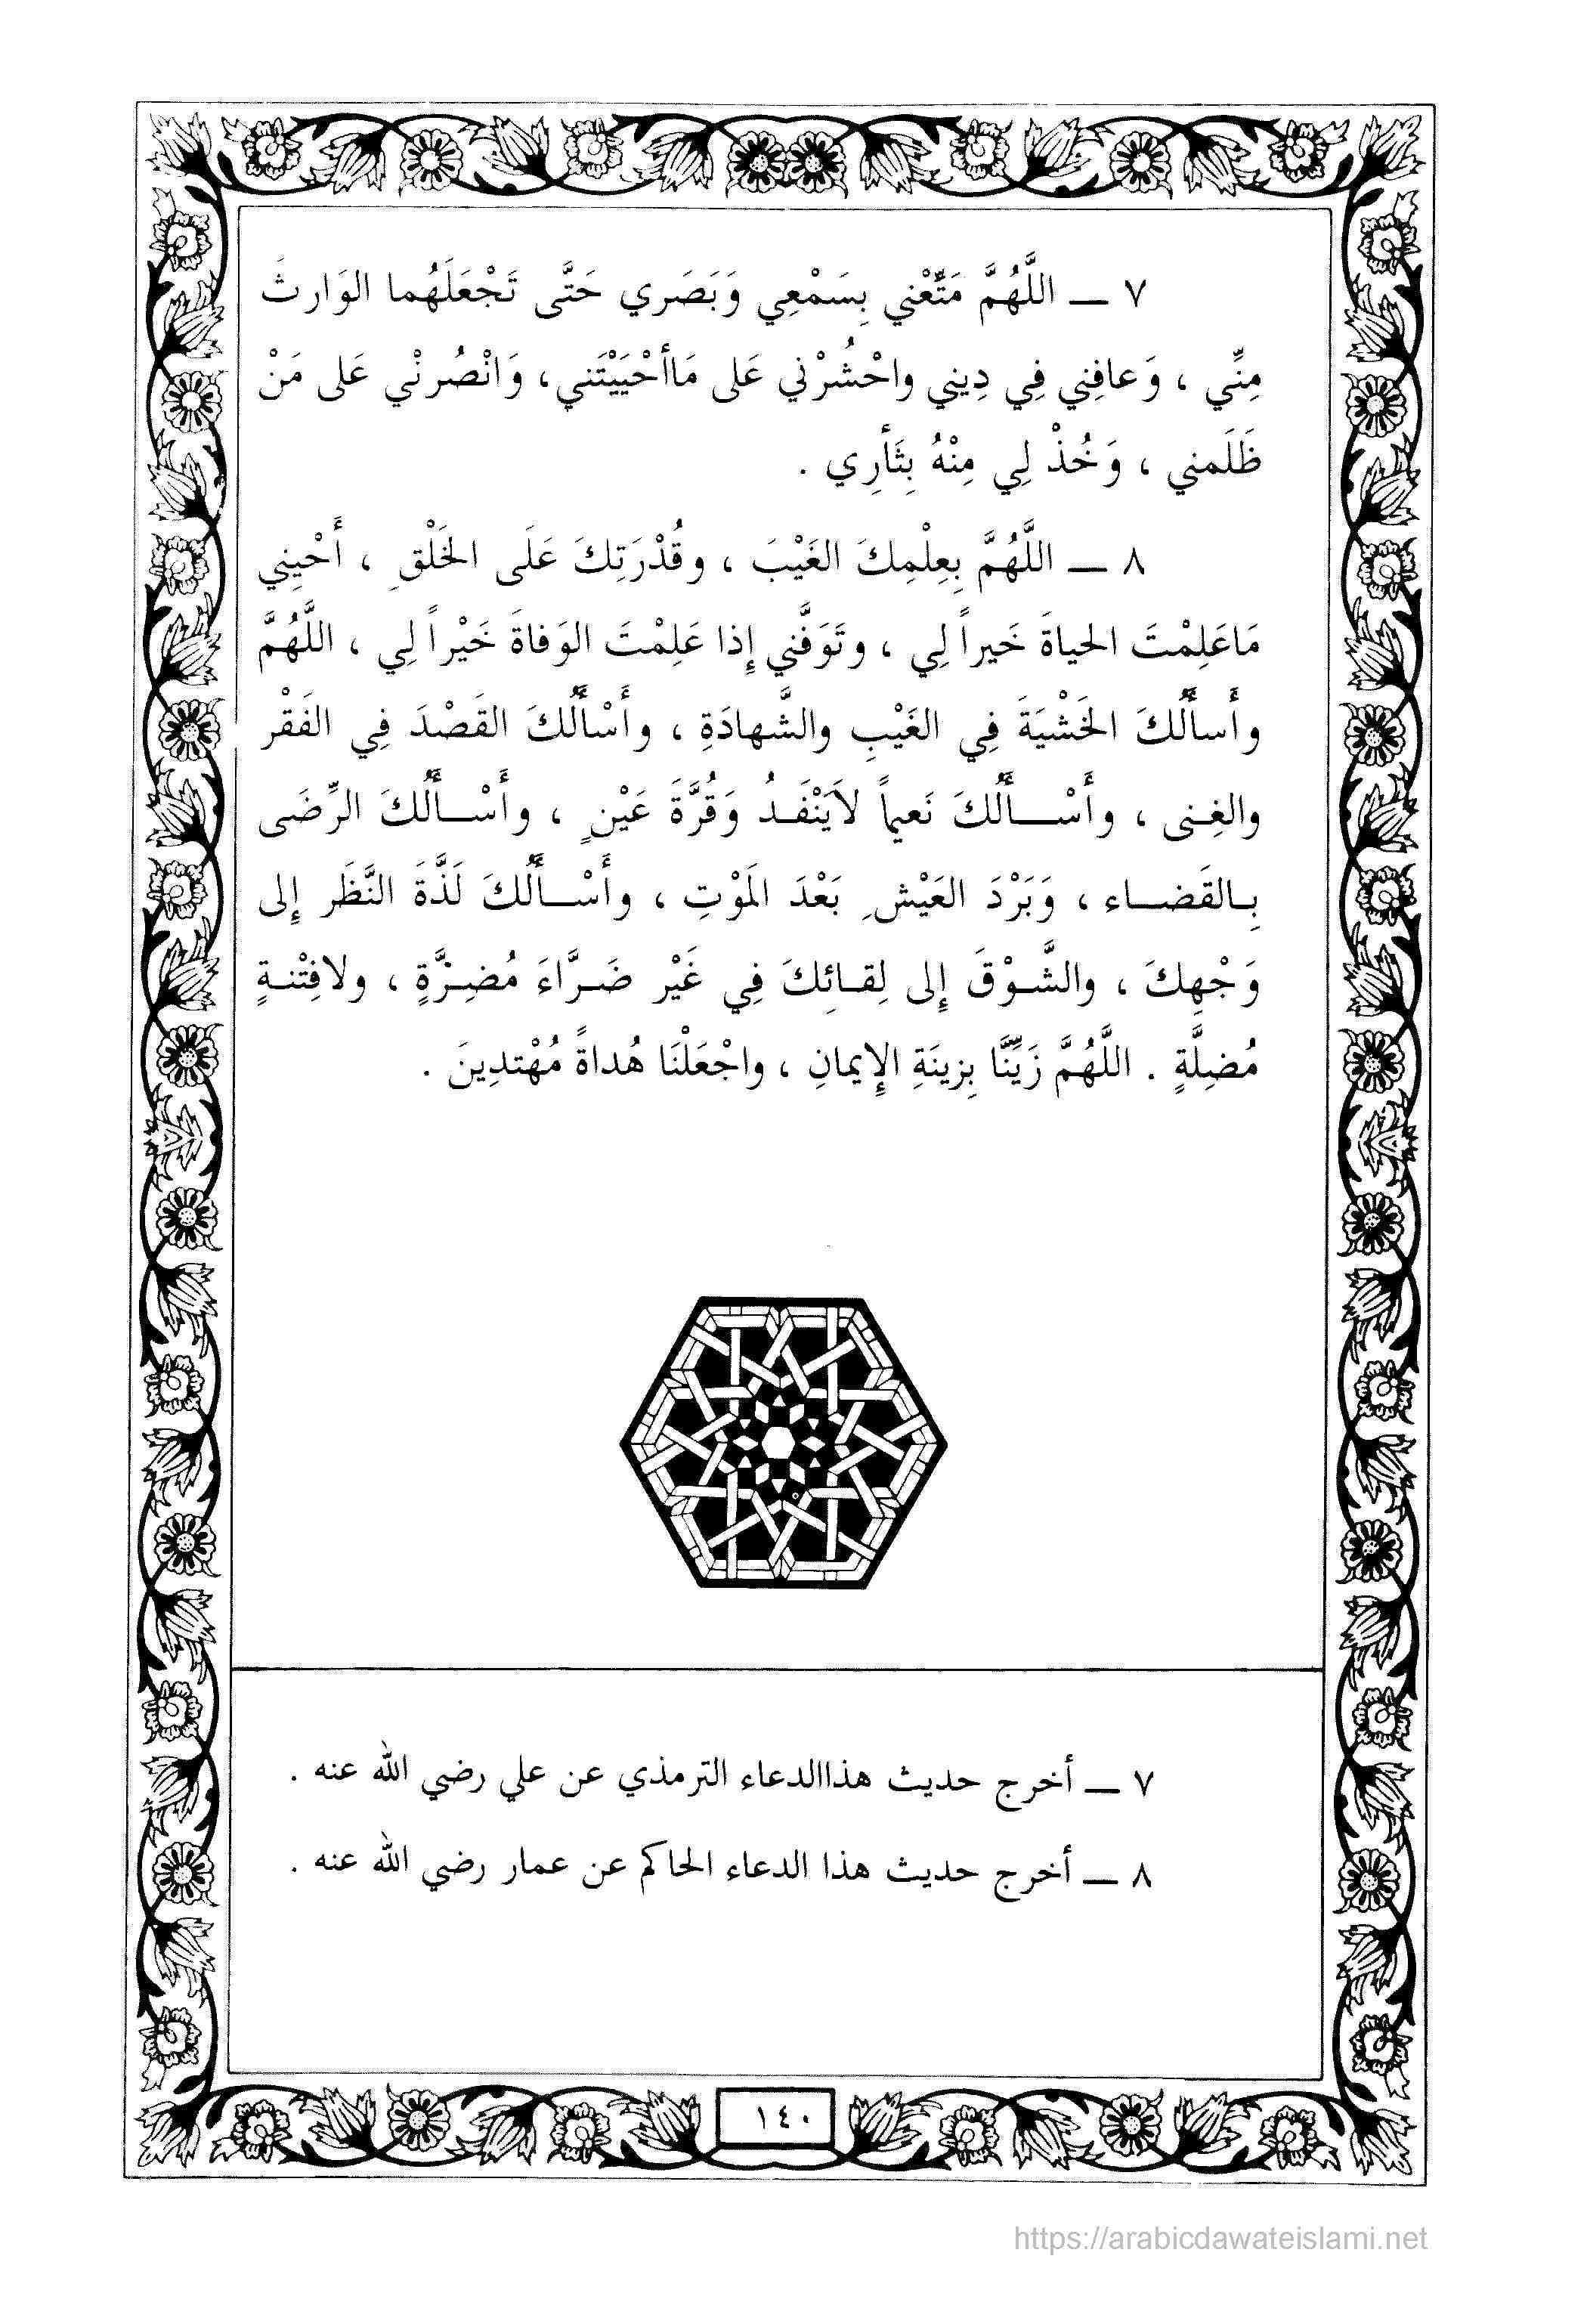 ٧ ــ اللَّهُمَّ مَتِّعْني بِسَمْعِي وَبَصَري حَتَّى تَجْعَلَهُما الوَارثَ
مِنِّي ، وَعافِنِي فِي دِيني واحْشُرْني عَلى مَاأحْيَيْتَني، وَانْصُرنْي عَلى مَنْ
ظَلَمني ، وَخُذْ لِي مِنْهُ بِثَأرِي .
٨ ــ اللَّهُمَّ بِعِلْمِكَ الغَيْبَ ، وقُدْرَتِكَ عَلَى الخَلْقِ ، أَحْيِنِي
مَاعَلِمْتَ الحياةَ خَيراً لِي ، وتَوَفَّني إِذا عَلِمْتَ الوَفاةَ خَيْراً لِي ، اللَّهُمَّ
وأَسأَلُكَ الخَشْيَةَ فِي الغَيْبِ والشَّهادَةِ ، وأَسْأَلُكَ القَصْدَ فِي الفَقْر
والغِـنى ، وأَسْـــأَلُكَ نَعيماً لاَيَنْفَـدُ وَقُرَّةَ عَيْنٍ ، وأَسْـــأَلُكَ الرِّضَى
بِـالقَضـــاء ، وَبَرْدَ العَيْشِ بَعْدَ المَوْتِ ، وأَسْـــأَلُكَ لَذَّةَ النَّظَر إِلى
وَجْهِكَ ، والشَّـوْقَ إِلى لِقـائِكَ فِي غَيْر ضَـرَّاءَ مُضِـرَّةٍ ، ولافِتْنـةٍ
مُضِلَّةٍ . اللَّهُمَّ زَيِّنَّا بِزينَةِ الإِيمانِ ، واجْعَلْنَا هُداةً مُهْتدِينَ .
٧ ــ أخرج حديث هذاالدعاء الترمذي عن علي رضي الله عنه .
٨ ــ أخرج حديث هذا الدعاء الحاكم عن عمار رضي الله عنه .
١٤٠
https://arabicdawateislami.net